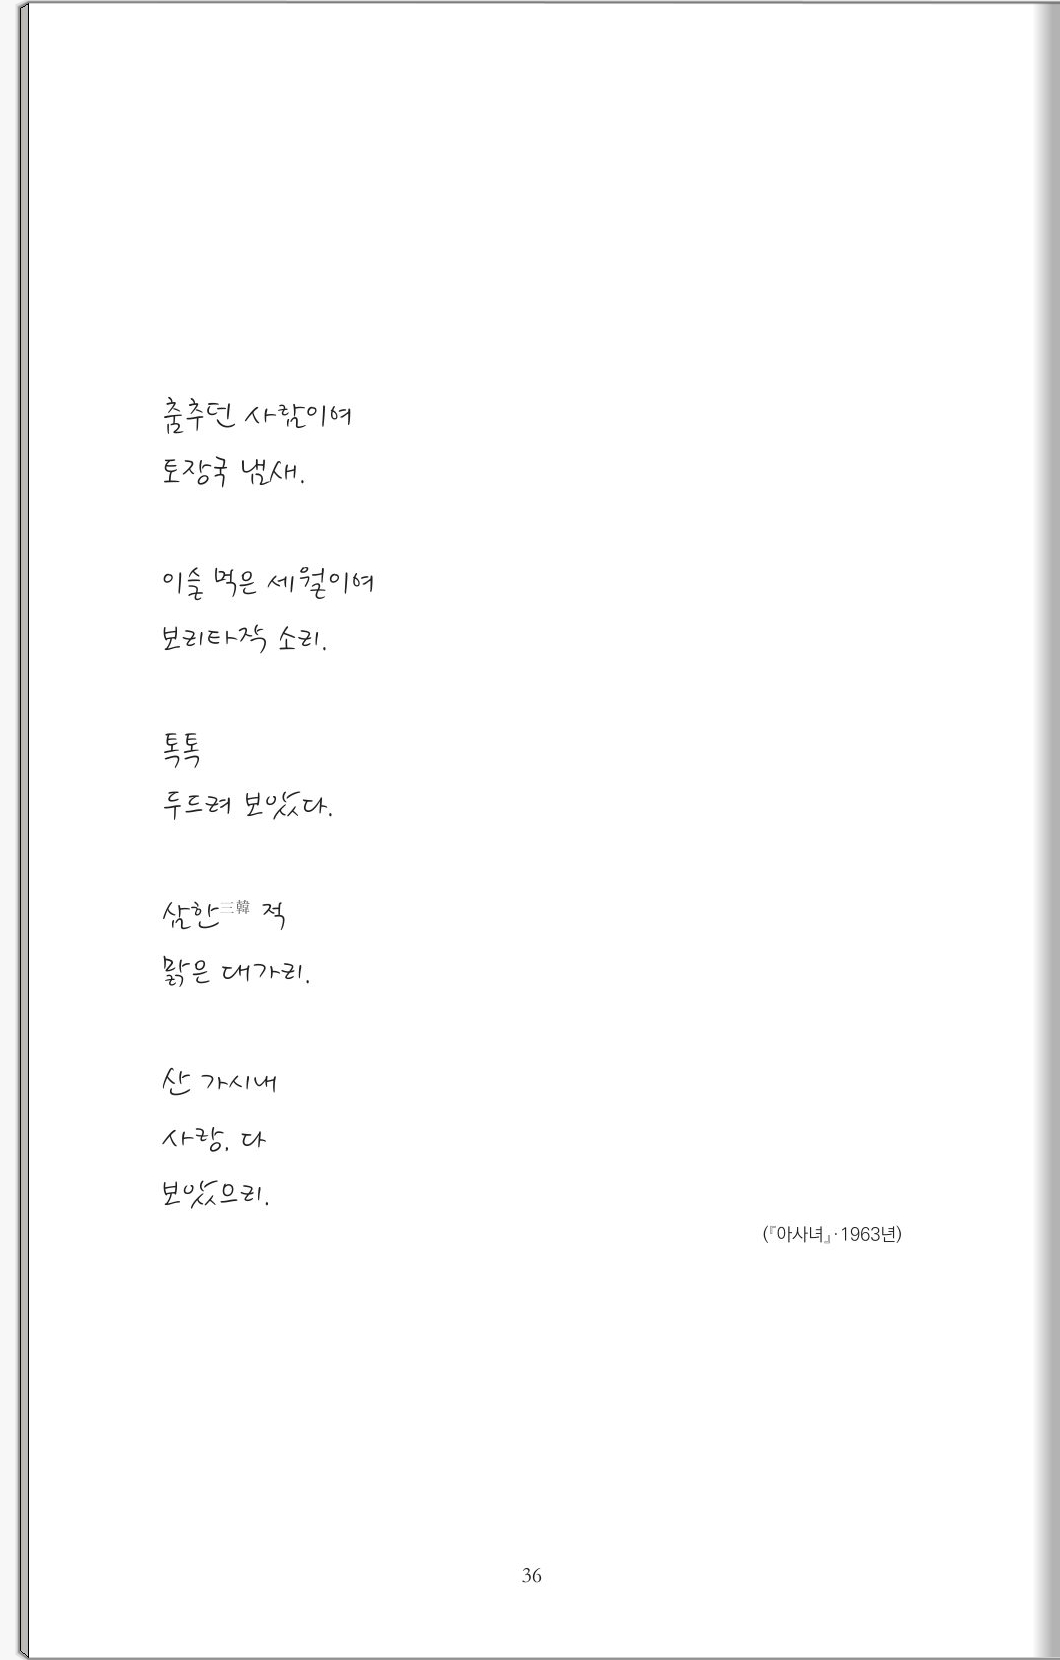 춤추던 사람이여
토장국 냄새.
이슬 먹은 세월이여
보리타작 소리.
톡톡
두드려 보았다.
삼한三韓 적
맑은 대가리.
산 가시내
사랑, 다
보았으리.
(『아사녀』·1963년)
36